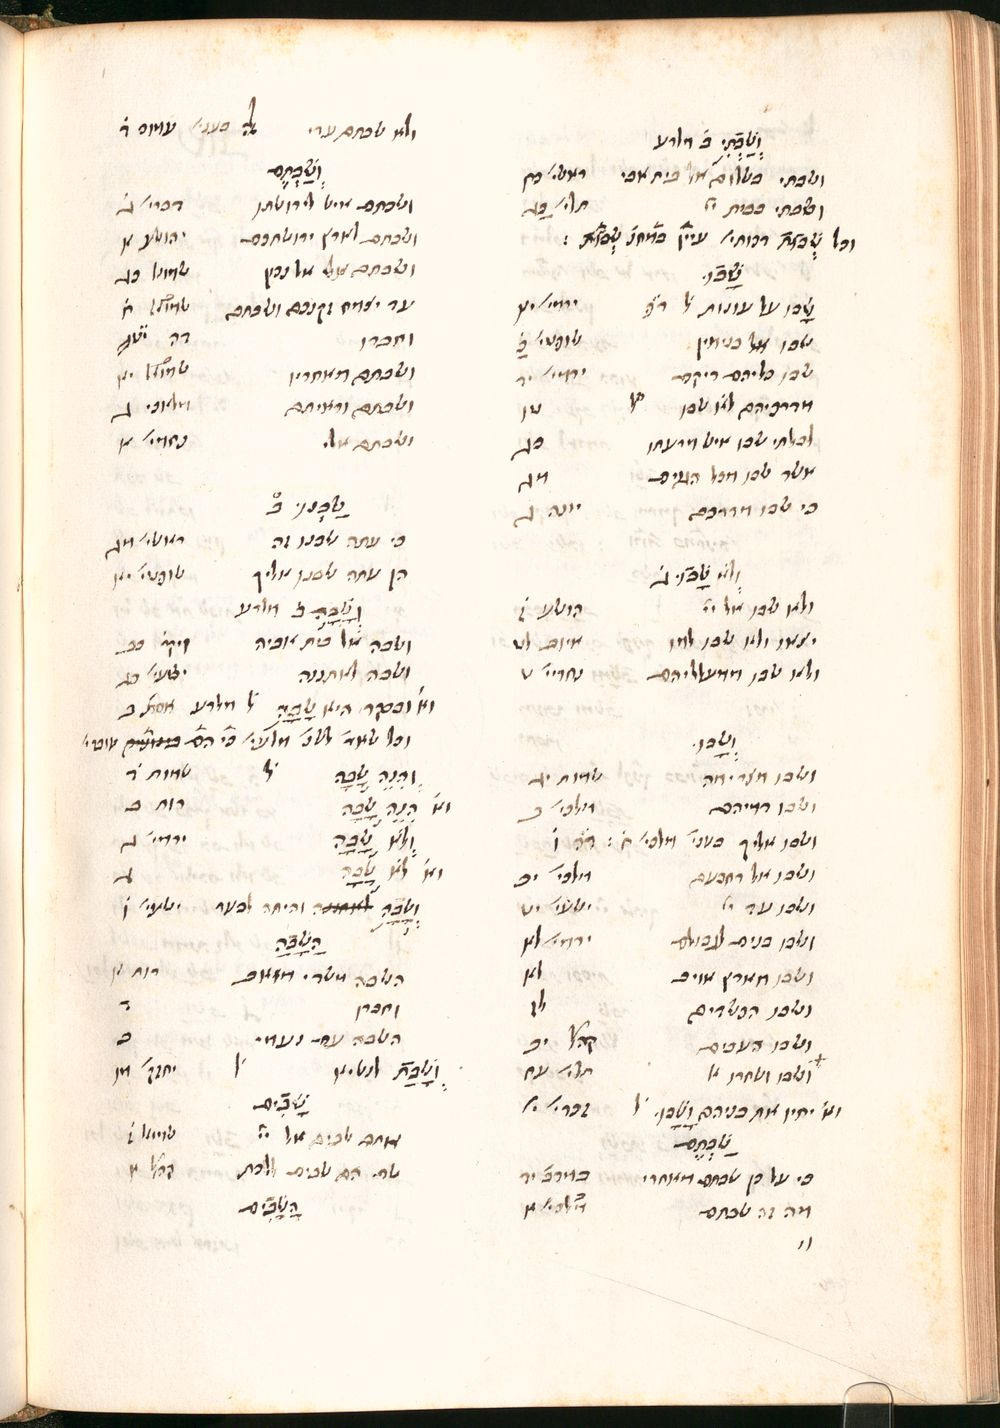 וְשַׁבְתִּי ב׳ מלרע
ושבתי בשלום אל בית אבי ראשי׳ כח
ושבתי בבית יי׳ תלי׳ כג
וכל
שָׁבוּ.
שָׁבו על עונות ל׳ ירמי׳ יא
שבו אל בנימין שופטי׳ כ
שבו כליהם ריקם ירמי׳ יד
מדרכיהם לא שבו ל׳ טו
לבלתי שבו איש מרעתו כג
אשר שבו מכל הגוים מג
כי שבו מדרכם יונה ג
ולא שָׁבוּ. ג׳
ולא שבו אל יי׳ הושע ז
יצאו ולא שבו למו איוב לט
ולא שבו ממעלליהם נחמי׳ ט
וְשָׁבו.
ושבו מצרימה שמות יג
ושבו רמיהם מלכי׳ ב
ושבו אליך בעני׳ מלכי׳ ח׳ : דה׳ ו׳
ושבו אל רחבעם מלכי׳ יב
ושבו עד יי׳ ישעי׳ יט
ושבו בנים לגבולם ירמי׳ לא
ושבו מארץ אויב לא
ושבו הכשדים לז
ושבו העבים קהל׳ יב
ושבו ושחרו אל תלי׳ עח
וא׳ יחיו את בניהם וָשָׁבוּ. ל׳ זכרי׳ י׳
שַׁבְתֶּם
כי על כן שבתם מאחרי במדב׳ יד
מה זה שבתם מלכי׳ א
״
ולא שבתם עדי ה׳ בעני׳ עמוס ד׳
וְשַׁבְתֶּם
ושבתם איש לירושתו דברי׳ ג
ושבתם לארץ ירושתכם יהושע א
ושבתם אלי אל נכון שמוא׳ כג
עד יצמח זקנכם ושבתם שמוא׳ י׳
וחברו דה׳ יט
ושבתם מאחריו שמוא׳ יא
ושבתם וראיתם מלאכי ג
ושבתם אלי נחמי׳ א
שַׁבְנוּ. ב׳
כי עתה שבנו זה ראשי׳ מג
הן עתה שבנו אליך שופטי׳ יא
וְשָׁבָה ב׳ מלרע
ושבה אל בית אביה ויק׳ כב
ושבה לאתננה ישעי׳ כג
וא׳ ובבקר היא שָׁבָה ל׳ מלרע אסת׳ ב
וכל שאר׳ לשנ׳ מלעי׳
והנה שָׁבָה ל׳ שמות ד׳
וא׳ הִנֵּה שָׁבָה רות ב
ולא שָׁבָה ירמי׳ ג
וא׳ לא שָׁבָה ג
וְשָׁבָה והיתה לבער ישעי׳ ו
הַשָּׁבָה
השבה משדי מואב רות א
וחברו ד
השבה עם נעמי ב
וְשָׁבַת לנשיא ל׳ יחזק׳ מו
שָׁבִים
אתם שבים אל יי׳ שמוא׳ ז
שם הם שבים ללכת קהל׳ א
הַשָּׁבִים